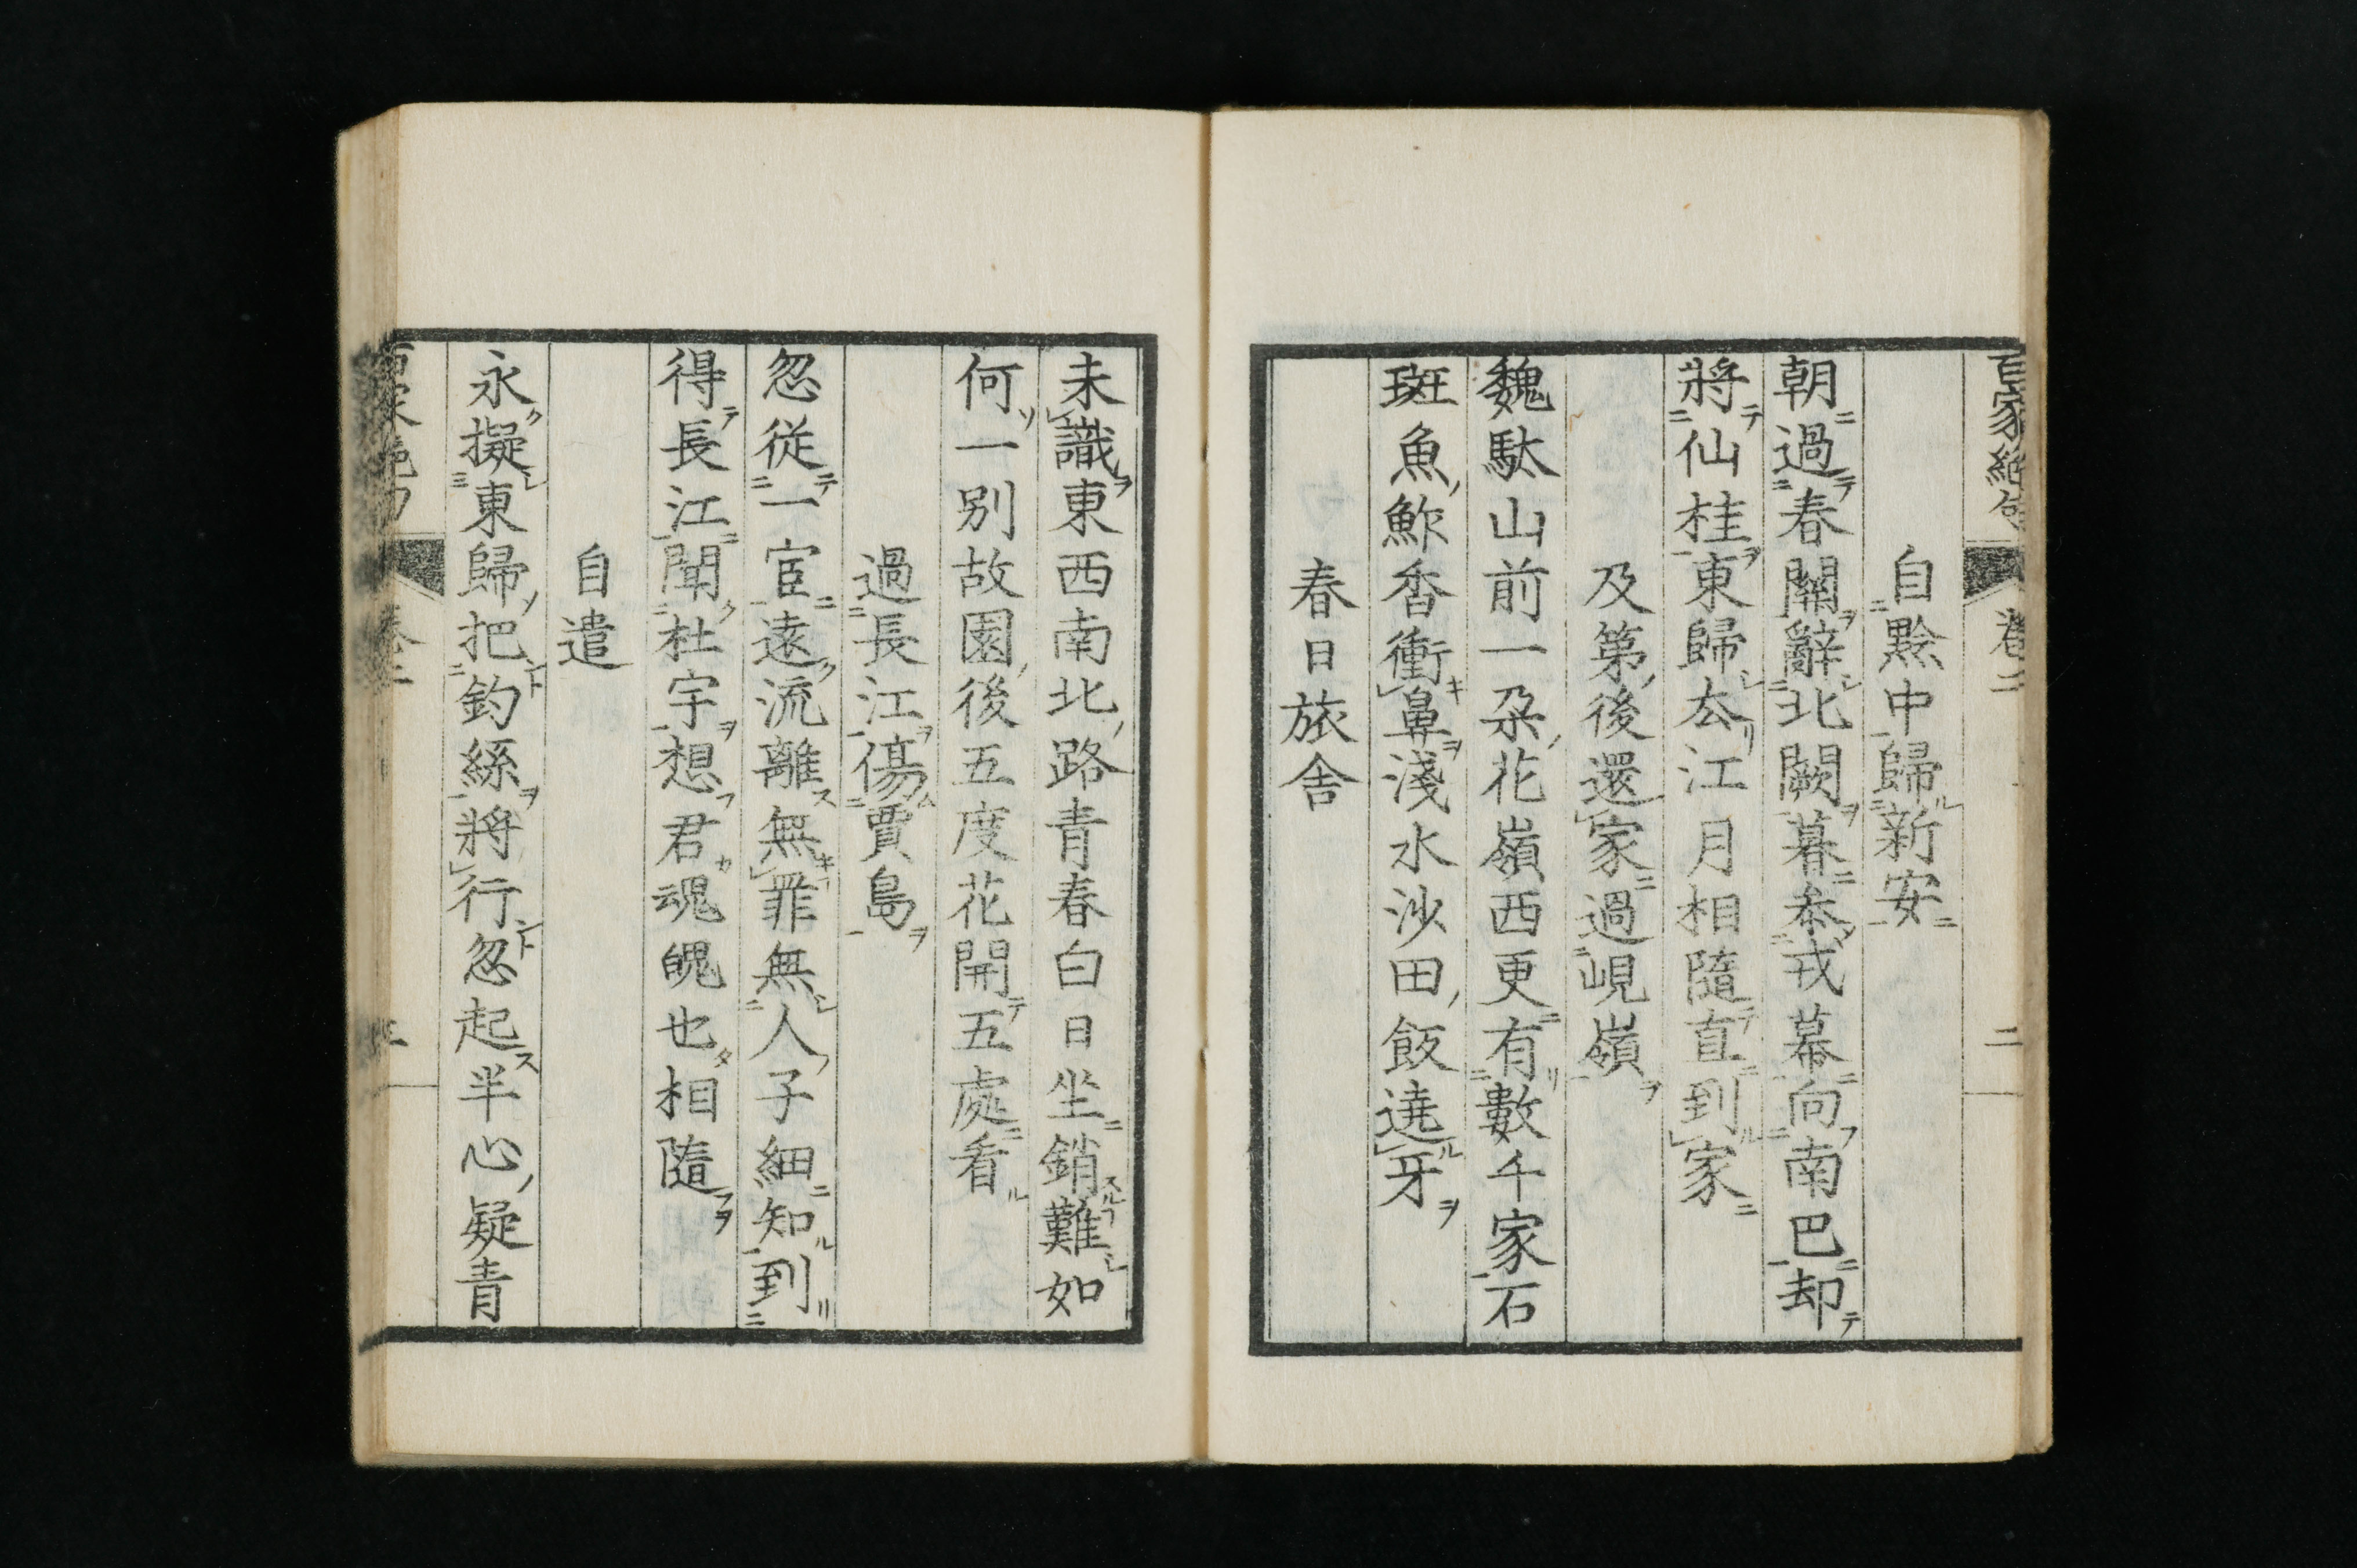 百家絶句 卷二 二
自黔中歸新安
朝過春關辭北闕暮參戎幕向南巴却
將仙桂東歸去江月相隨直到家
及第後還家過峴嶺
魏馱山前一朶花嶺西更有數千家石
斑魚鮓香衝鼻淺水沙田飯遶牙
春日旅舍
未識東西南北路青春白日坐銷難如
何一別故園後五度花開五處看
過長江傷賈島
忽從一宦遠流離無罪無人子細知到
得長江聞杜宇想君魂魄也相隨
自遣
永擬東歸把釣絲將行忽起半心疑青